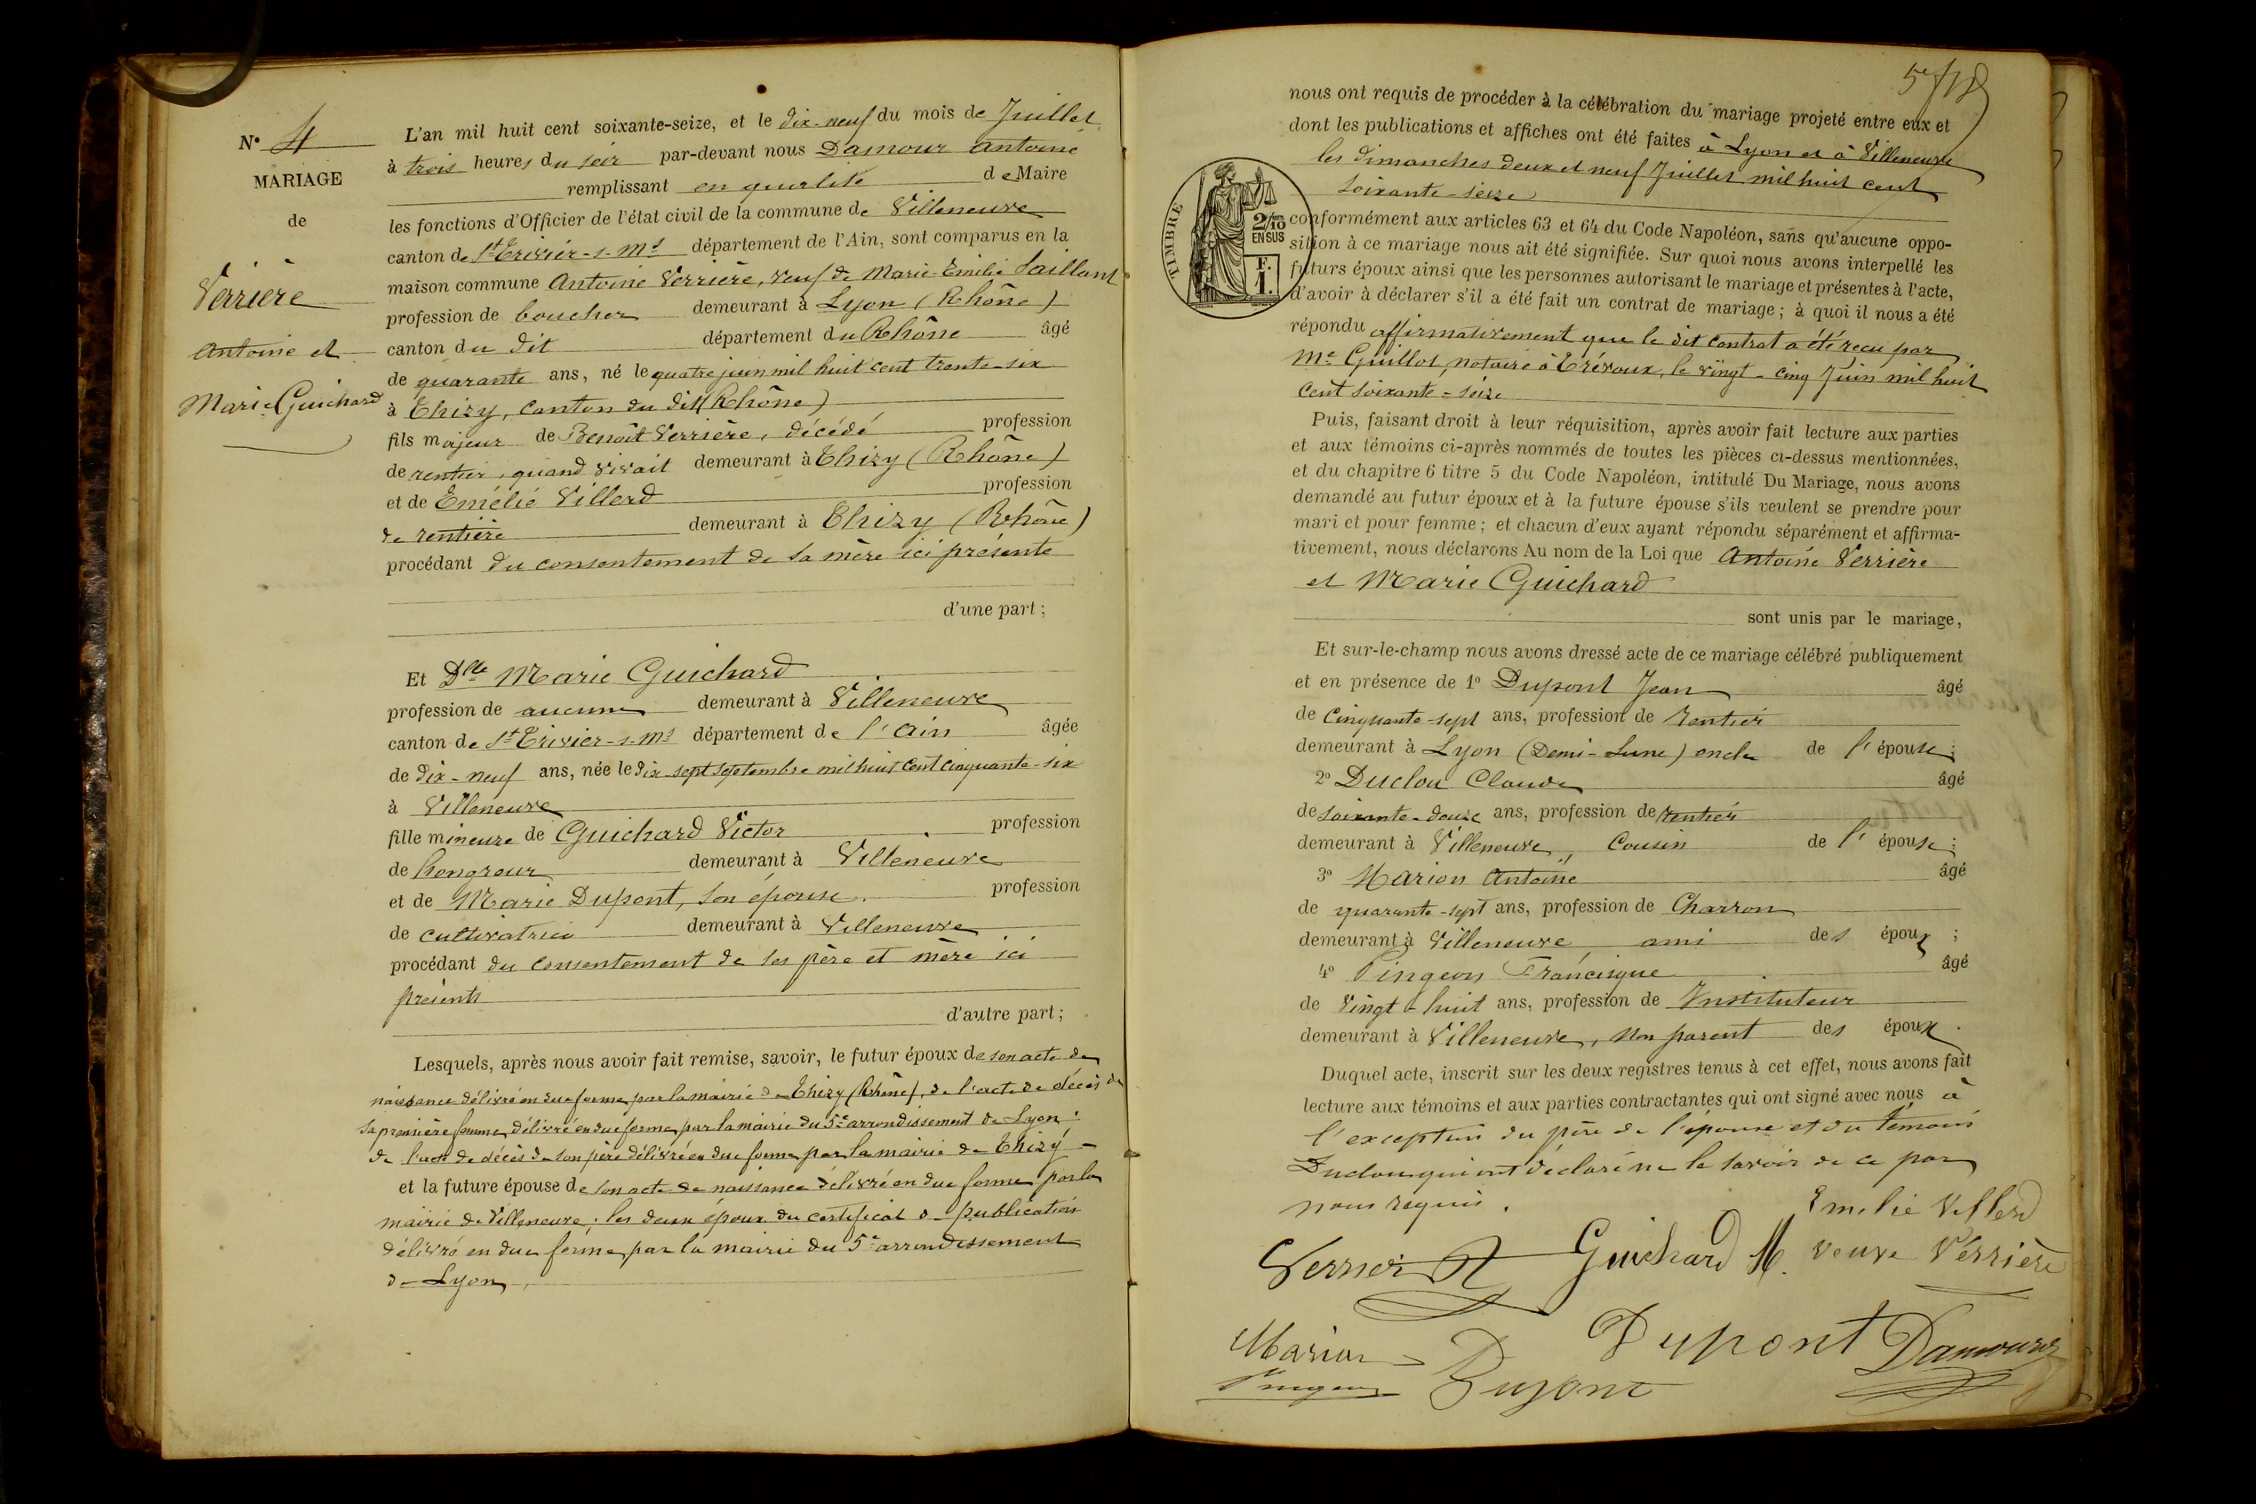 N° 4
MARIAGE
de
Verrière
Antoine et
Marie Guichard
L'an mil huit cent soixante-seize, et le dix-neuf du mois de Juillet
à trois heures du soir par-devant nous Damour Antoine
remplissant en qualité de Maire
les fonctions d'Officier de l'état civil de la commune de Villeneuve
canton de St Trivier-s-Ms département de l'Ain, sont comparus en la
maison commune Antoine Verrière, veuf de Marie Emilie Saillant
profession de boucher demeurant à Lyon (Rhône)
canton du dit département du Rhône âgé
de quarante ans, né le quatre juin mil huit cent trente-six
à Thizy, canton du dit (Rhône)
fils majeur de Benoît Verrière, décédé profession
de rentier, quand vivait demeurant à Thizy (Rhône)
et de Emélie Villerd profession
de rentière demeurant à Thizy (Rhône)
procédant du consentement de sa mère ici présente
d'une part;
Et Dlle Marie Guichard
profession de aucune demeurant à Villeneuve
canton de St Trivier-s-Ms département de l'Ain âgée
de dix-neuf ans, née le dix sept septembre mil huit cent cinquante-six
à Villeneuve
fille mineure de Guichard Victor profession
de hongreur demeurant à Villeneuve
et de Marie Dupont, son épouse profession
de cultivatrice demeurant à Villeneuve
procédant du consentement de ses père et mère ici
présents
d'autre part;
Lesquels, après nous avoir fait remise, savoir, le futur époux de son acte de
naissance délivré en due forme par la mairie de Thizy (Rhône), de l'acte de décès de
sa première femme, délivré en due forme par la mairie du 5e arrondissement de Lyon;
de l'acte de décès de son père délivré en due forme par la mairie de Thizy
et la future épouse de son acte de naissance délivré en due forme par la
mairie de Villeneuve; les deux époux du certificat de publication
délivré en due forme par la mairie du 5e arrondissement
de Lyon,
nous ont requis de procéder à la célébration du mariage projeté entre eux et
dont les publications et affiches ont été faites à Lyon et à Villeneuve
les dimanches deux et neuf Juillet mil huit cent
soixante-seize
TIMBRE
2/10
EN SUS
F.
1.
conformément aux articles 63 et 64 du Code Napoléon, sans qu'aucune oppo-
sition à ce mariage nous ait été signifiée. Sur quoi nous avons interpellé les
futurs époux ainsi que les personnes autorisant le mariage et présentes à l'acte,
d'avoir à déclarer s'il a été fait un contrat de mariage; à quoi il nous a été
répondu affirmativement que le dit contrat a été reçu par
Me Guillot, notaire à Trévoux, le vingt-cinq Juin mil huit
cent soixante-seize
Puis, faisant droit à leur réquisition, après avoir fait lecture aux parties
et aux témoins ci-après nommés de toutes les pièces ci-dessus mentionnées,
et du chapitre 6 titre 5 du Code Napoléon, intitulé Du Mariage, nous avons
demandé au futur époux et à la future épouse s'ils veulent se prendre pour
mari et pour femme; et chacun d'eux ayant répondu séparément et affirma-
tivement, nous déclarons Au nom de la Loi que Antoine Verrière
et Marie Guichard
sont unis par le mariage,
Et sur-le-champ nous avons dressé acte de ce mariage célébré publiquement
et en présence de 1° Dupont Jean âgé
de cinquante-sept ans, profession de rentier
demeurant à Lyon (Demi-Lune) oncle de l'épouse;
2° Duclou Claude âgé
de soixante-douze ans, profession de rentier
demeurant à Villeneuve, cousin de l'épouse;
3° Marion Antoine âgé
de quarante-sept ans, profession de Charron
demeurant à Villeneuve, ami des époux;
4° Pingeon Francisque âgé
de vingt-huit ans, profession de Instituteur
demeurant à Villeneuve, non parent des époux.
Duquel acte, inscrit sur les deux registres tenus à cet effet, nous avons fait
lecture aux témoins et aux parties contractantes qui ont signé avec nous à
l'exception du père de l'épouse et du témoin
Duclou qui ont déclaré ne le savoir de ce par
nous requis.
Emelie Villerd
Verrier A Guichard M. veuve Verrière
Marion Dupont Damour
Pingeon Dupont